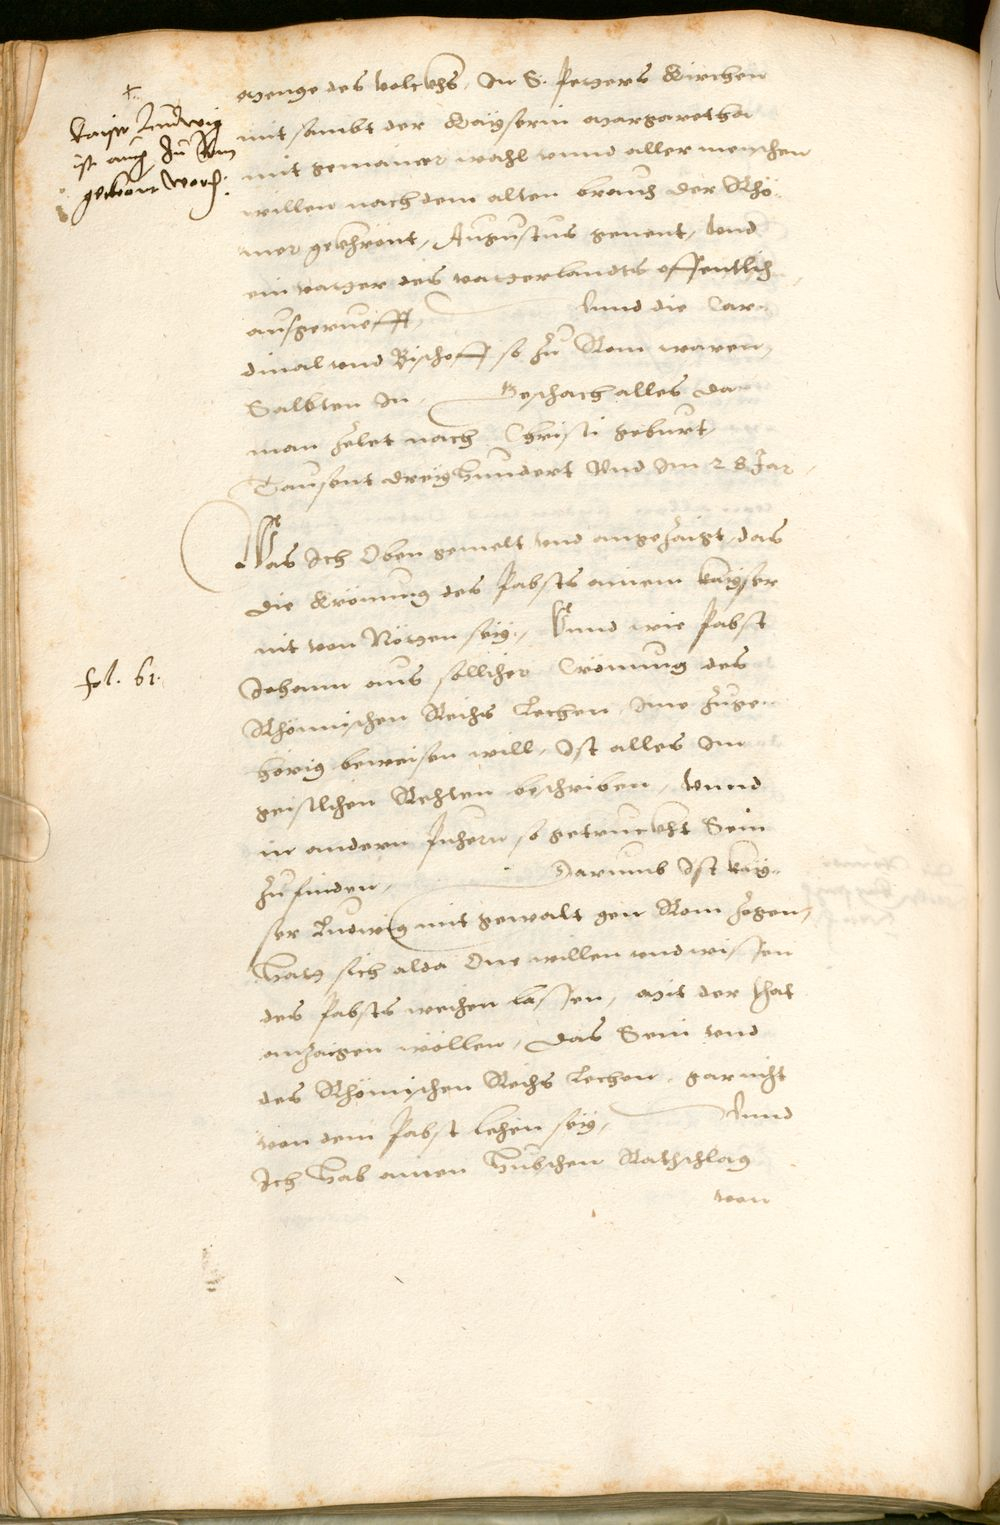 +
Kaiser Ludwig
ist auch zu Rom
gekrönt word:
menge des volckhs, In S. Petters Kirchen
mit sambt der Kayserin Margaretha
mit gemainer wahl vnnd aller menschen
willen nach dem alten brauch der Rhö-
mer gekhrönt, Augustus genent, Vnd
ein vatter des vatterlandts offentlich
ausgeruefft, Vnnd die Car-
dinal vnd Bischoff so zu Rom waren,
Salbten In, Geschach alles da
man zelet nach Christi geburt,
Tausent dreyhundert Vnd Im 28 Jar,
Was Ich Oben gemelt vnd angezaigt, das
die Krönung des Pabsts ainem Kayser
nit von Nötten sey, Vnnd wie Pabst
fol. 61.
Johann aus sollicher Crönung des
Rhömischen Reichs Lechen, Ime zuge-
hörig beweisen will, Ist alles Im
geistlichen Rechten beschriben, Vnnd
in andern Püchern so getruckht Sein
zu finden, Darumb Ist Kay-
ser Ludwig mit gewalt gen Rom zogen,
Hatt sich alda One willen vnd wissen
des Pabsts weichen lassen, Mit der that
anzaigen wöllen, Das Sein vnd
des Rhömischen Reichs Lechen, gar nicht
von dem Pabst lehen sey, Vnnd
Ich Hab ainen Hübschen Rathschlag
von